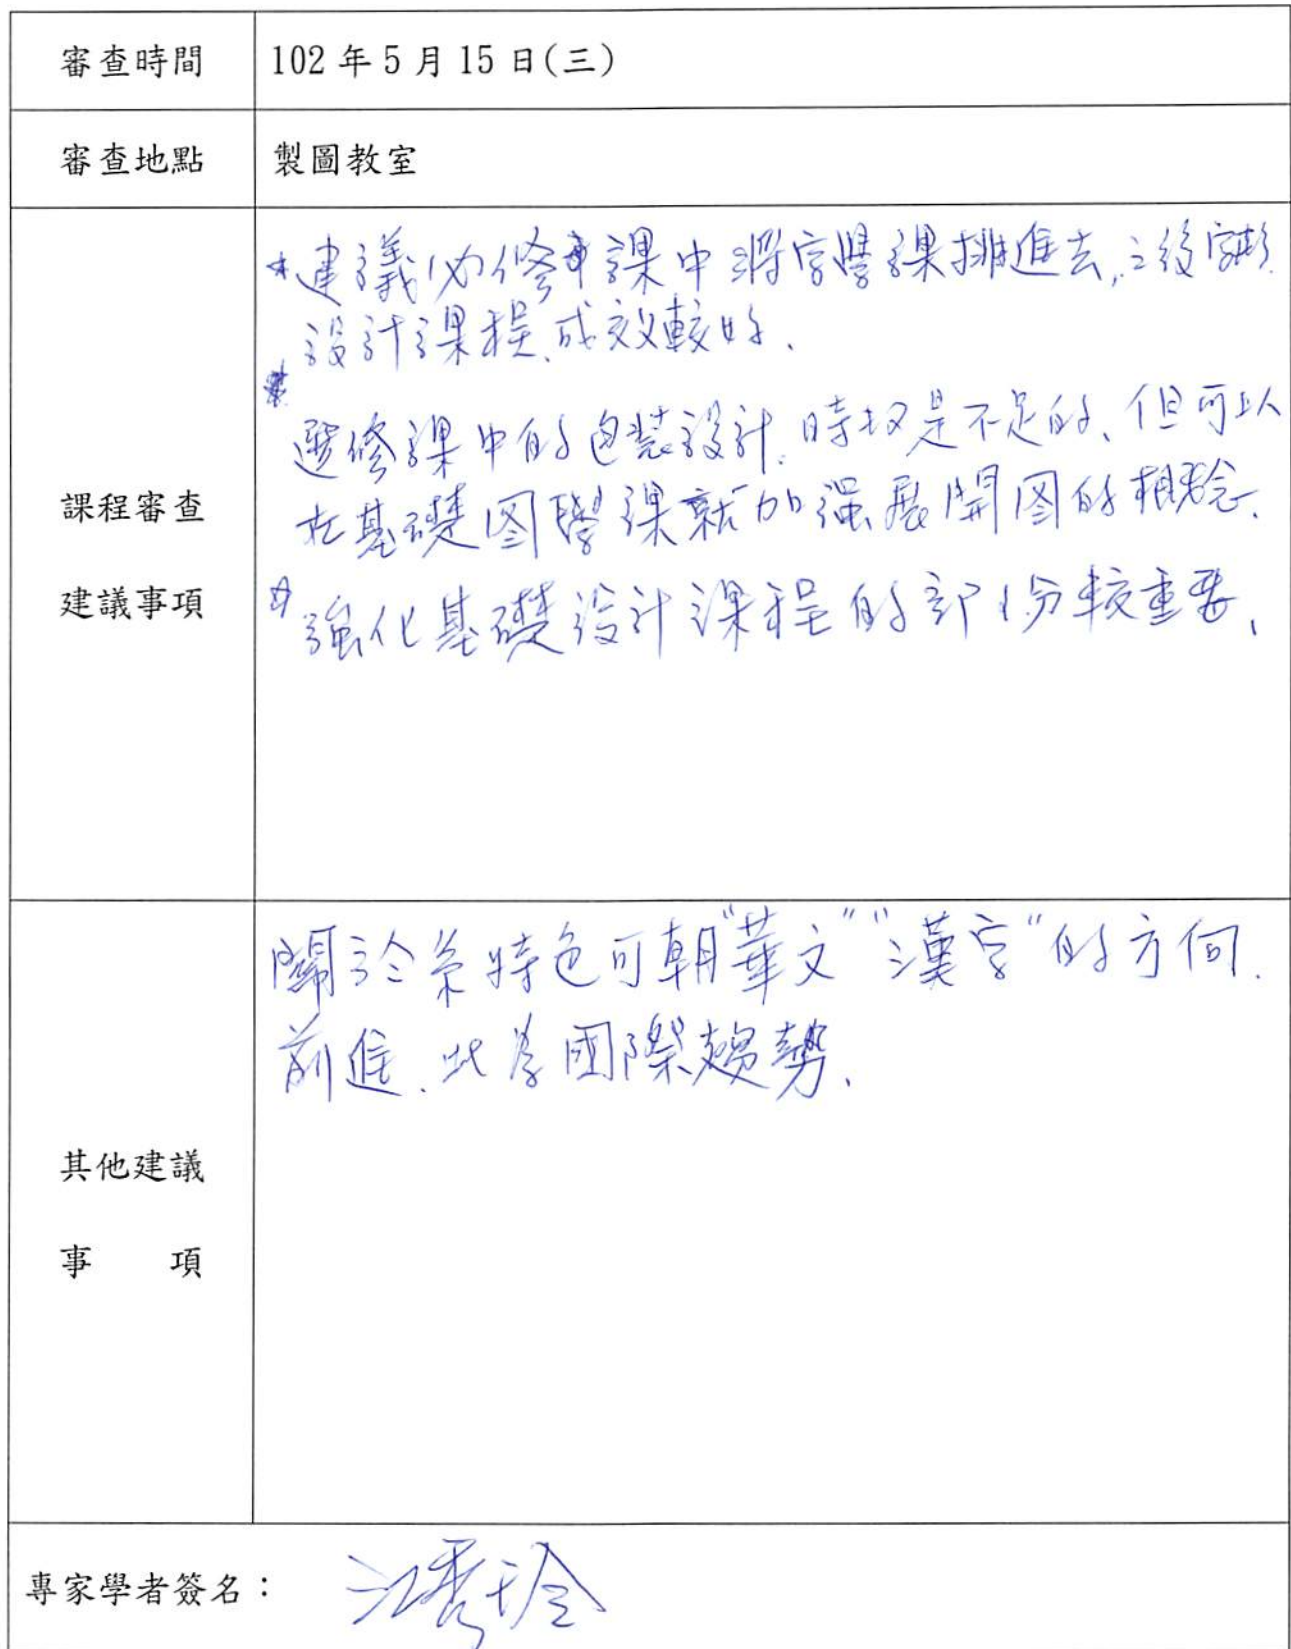 審查時間 102 年 5 月 15 日(三)
審查地點 製圖教室
課程審查
建議事項
*建議必修課中將字學課排進去,之後字形
設計課程、成效較好、
*選修課中的包裝設計、時數是不足的、但可以
在基礎图學課就加強展開图的概念、
☆強化基礎設計課程的部份較重要、
其他建議
事 項
關於系特色可朝"華文""漢字"的方向、
前進、此為國際趨勢、
專家學者簽名: 江秀玲